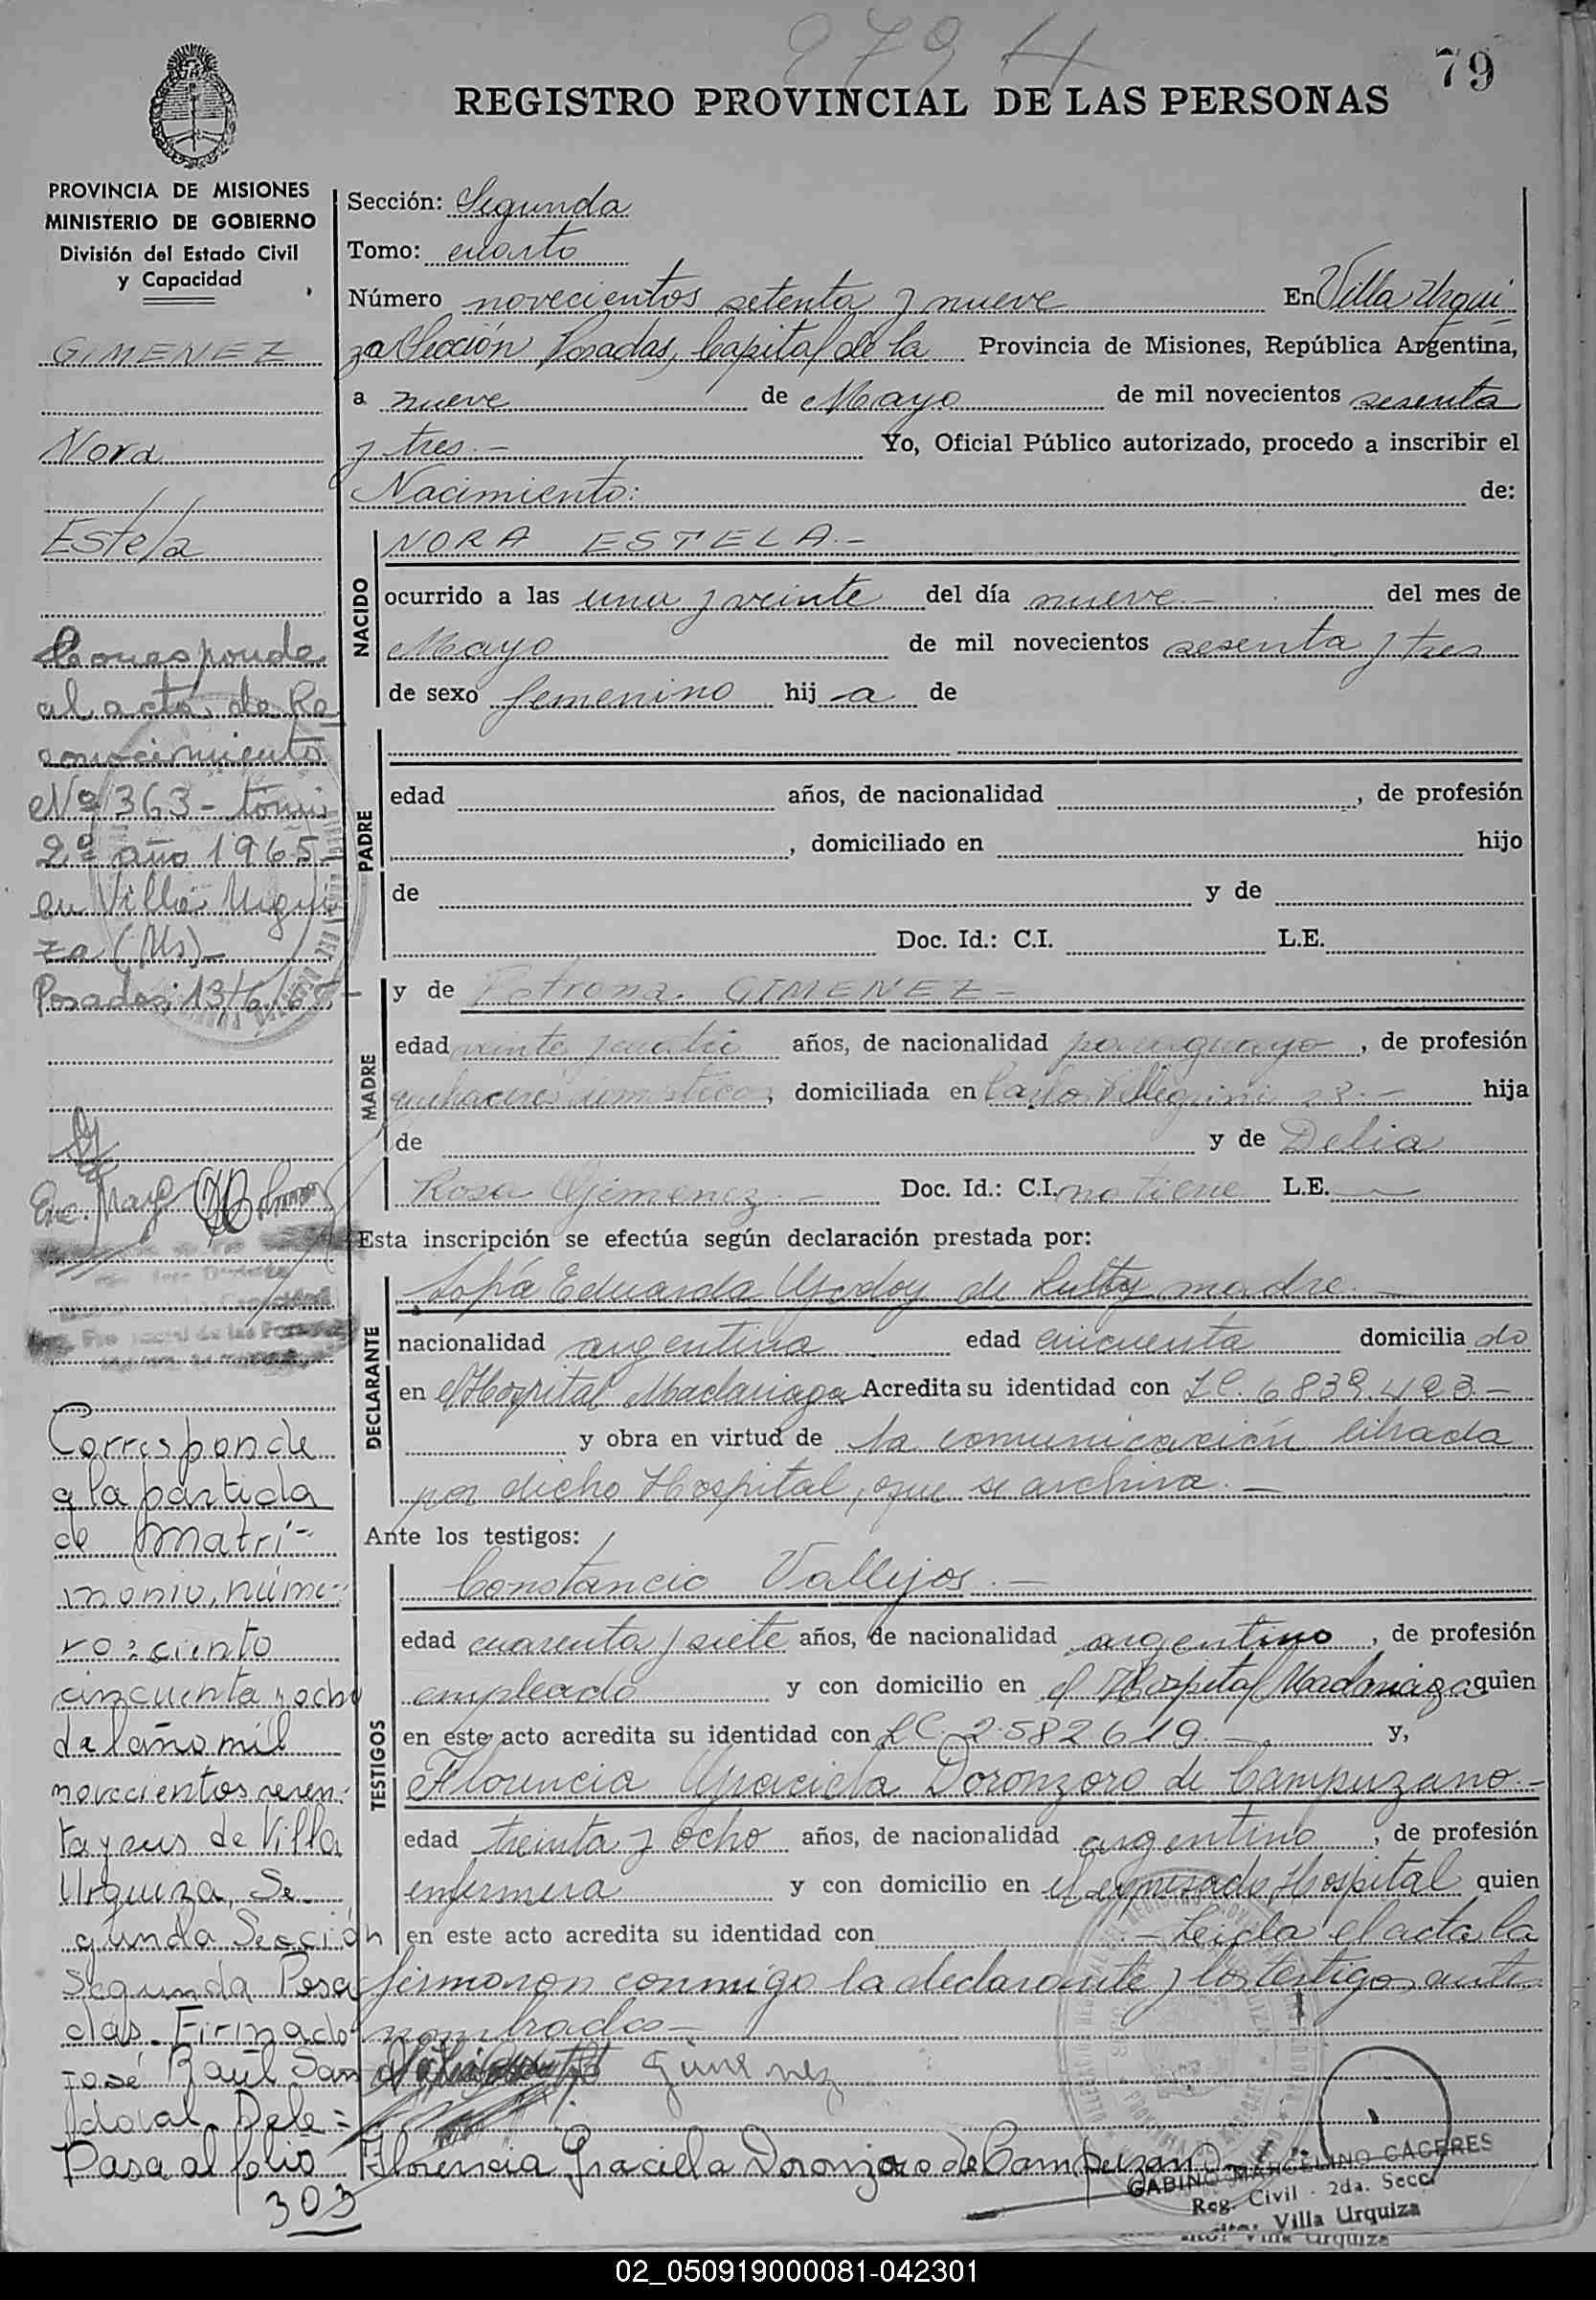 2794
79
REGISTRO PROVINCIAL DE LAS PERSONAS
PROVINCIA DE MISIONES
MINISTERIO DE GOBIERNO
División del Estado Civil
y Capacidad
GIMENEZ
Nora
Estela
Corresponde
al acto de Re
conocimiento
Nº 363 - tomo
2º año 1965
en Villa Urqui
za (Ms)
Posadas, 13/6/65
Enc. Mayo
Corresponde
a la partida
de matri-
monio, núme-
ro: ciento
cincuenta y ocho
del año mil
novecientos sesen-
ta y seis de Villa
Urquiza, Se-
gunda Sección
Segunda Posa
das. Firmado
José Raúl San
doval. Dele=
Pasa al folio
303
Sección: Segunda
Tomo: cuarto
Número novecientos setenta y nueve En Villa Urqui
za Sección Posadas, Capital de la Provincia de Misiones, República Argentina,
a nueve de Mayo de mil novecientos sesenta
y tres.- Yo, Oficial Público autorizado, procedo a inscribir el
Nacimiento: de:
NACIDO
NORA ESTELA.-
ocurrido a las una y veinte del día nueve.- del mes de
Mayo de mil novecientos sesenta y tres
de sexo femenino hij a de
PADRE
edad años, de nacionalidad , de profesión
, domiciliado en hijo
de y de
Doc. Id.: C.I. L.E.
MADRE
y de Petrona GIMENEZ-
edad veinte y cuatro años, de nacionalidad paraguaya, de profesión
quehaceres domésticos, domiciliada en Carlos Pellegrini 23.- hija
de y de Delia
Rosa Gimenez.- Doc. Id.: C.I. no tiene L.E. —
Esta inscripción se efectúa según declaración prestada por:
DECLARANTE
Sofía Eduarda Godoy de madre.-
nacionalidad argentina edad cincuenta domicilia do
en el Hospital Madariaga Acredita su identidad con L.C. 6839.423.-
y obra en virtud de la comunicación librada
por dicho Hospital, que se archiva.-
Ante los testigos:
TESTIGOS
Constancio Vallejos.-
edad cuarenta y siete años, de nacionalidad argentino, de profesión
empleado y con domicilio en el Hospital Madariaga quien
en este acto acredita su identidad con L.C. 2.582619.- y,
Florencia Graciela Doronzoro de Campuzano.-
edad treinta y ocho años, de nacionalidad argentino, de profesión
enfermera y con domicilio en el expresado Hospital quien
en este acto acredita su identidad con - Leída el acta la
firmaron conmigo la declarante y los testigos ante
nombrados-
Gimenez
Florencia Graciela Doronzoro de Campuzano
GABINO MARCELINO CACERES
Reg. Civil - 2da. Secc.
Villa Urquiza
Villa Urquiza
02_050919000081-042301